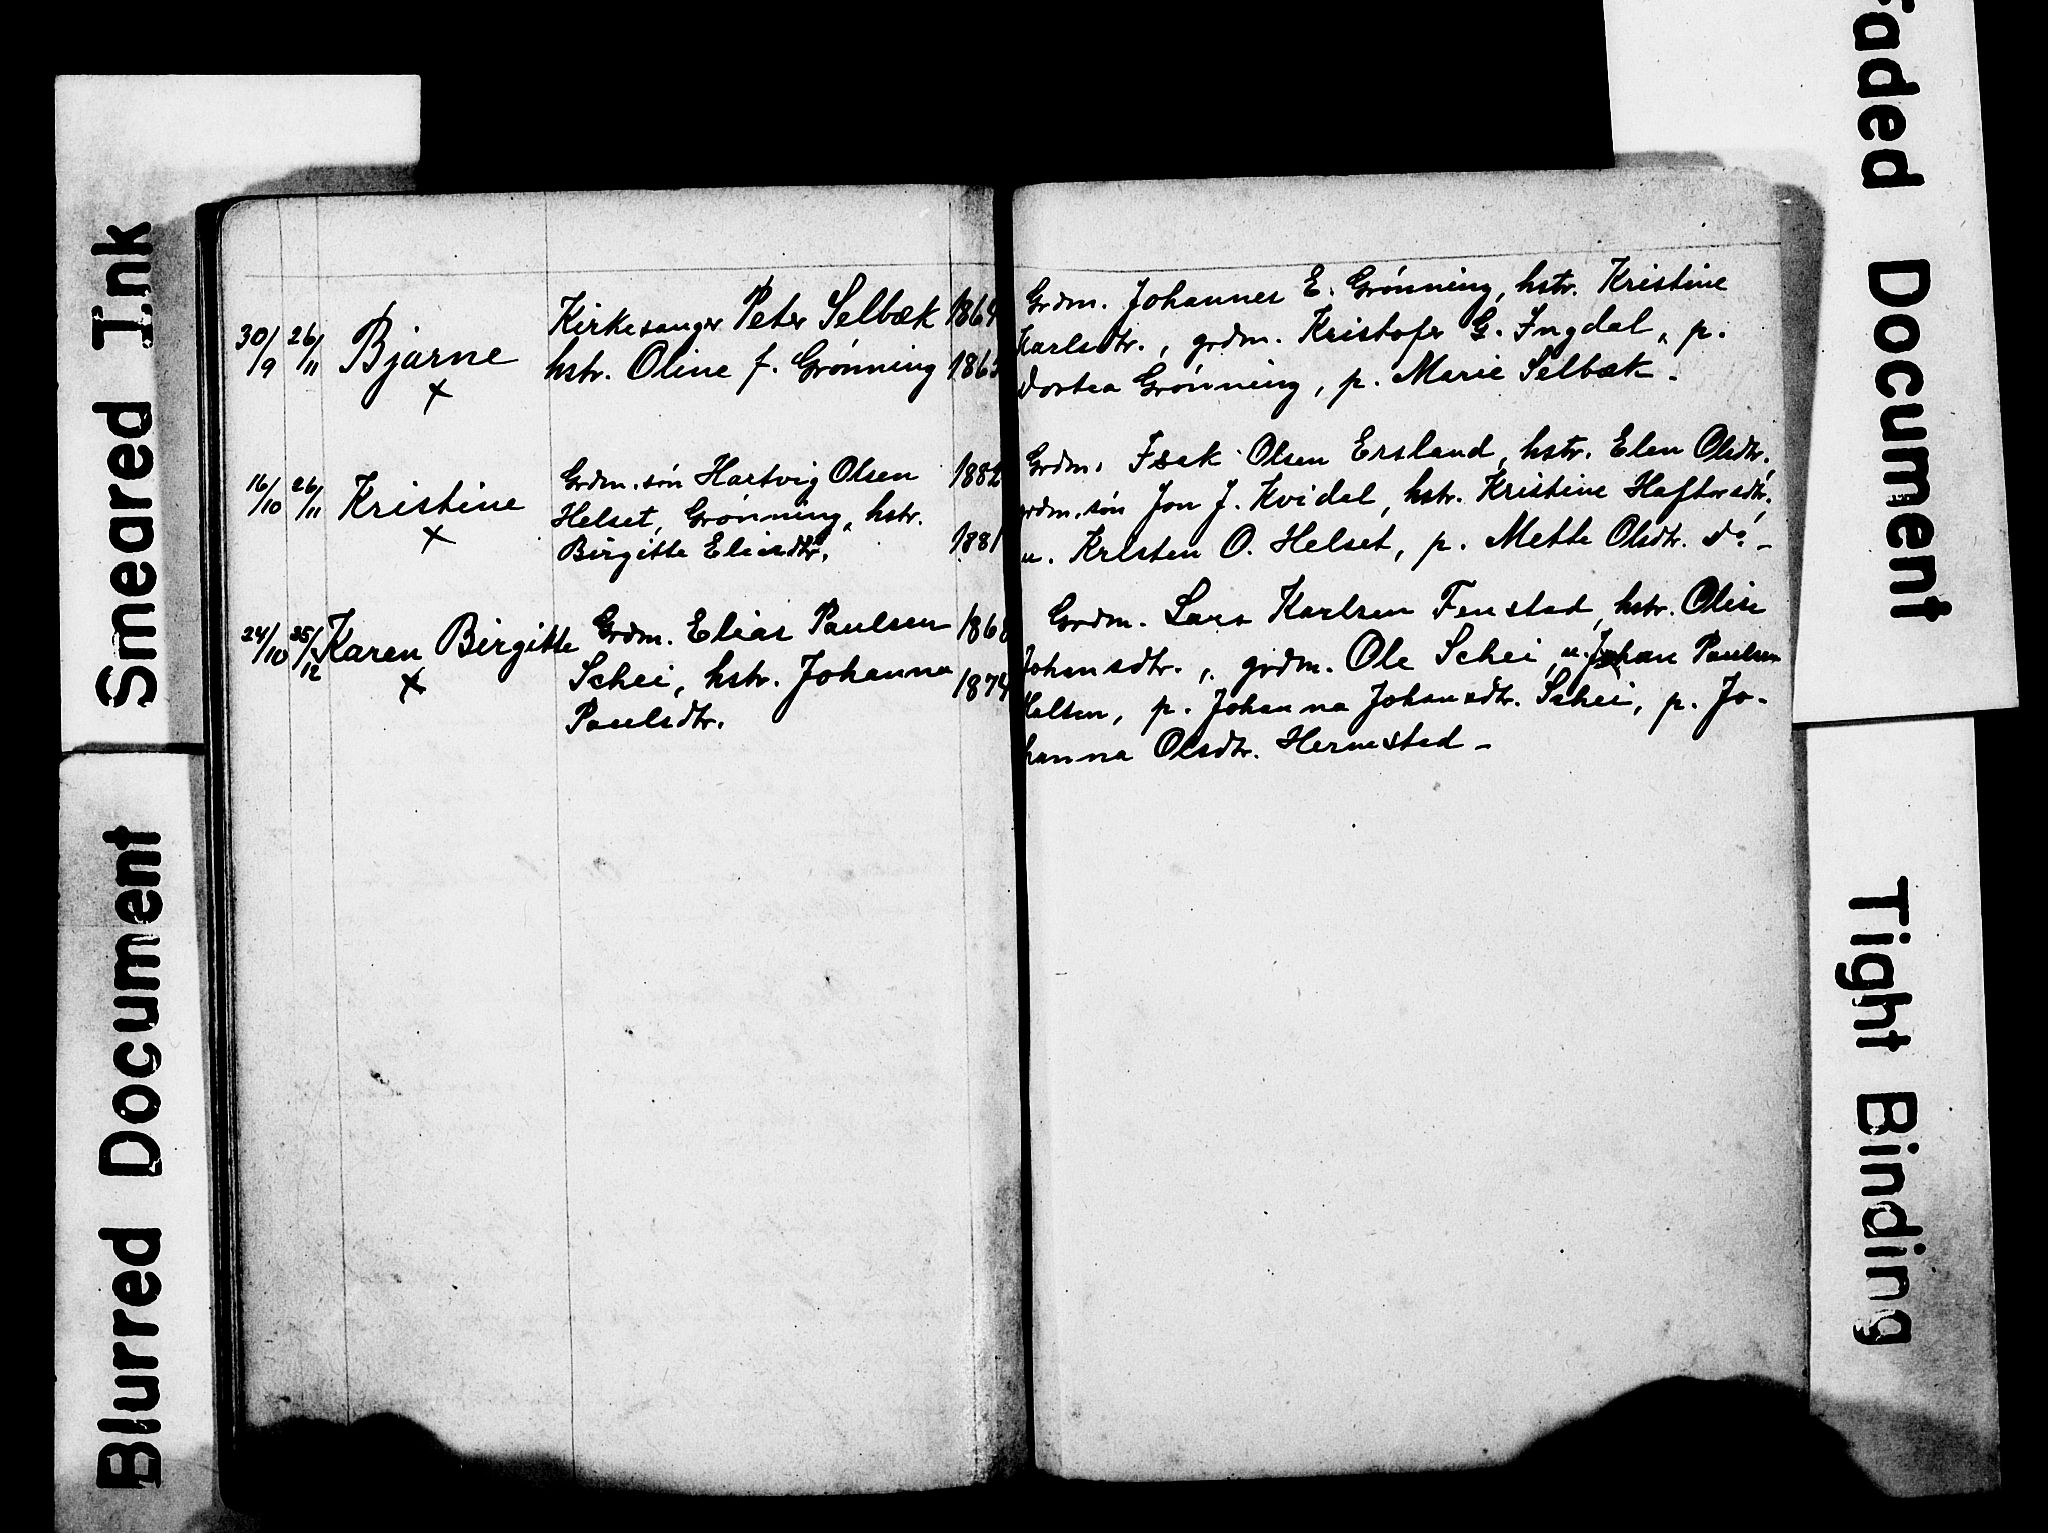 Smeared Ink
Blurred Document
Faded Document
Tight Binding
30/9 26/11 Bjarne Kirkesanger Peter Selbæk 1864
hstr. Oline f. Grønning 1865
×
Grdm. Johannes E. Grønning, hstr. Kristine
Karlsdtr., grdm. Kristofer G. Ingdal, p.
Dortea Grønning, p. Marie Selbæk.
16/10 26/11 Kristine Grdm. søn Hartvig Olsen 1882
Helset, Grønning, hstr.
Birgitte Eliasdtr. 1881
×
Grdm. Isak Olsen Ersland, hstr. Elen Olsdtr.,
grdm. søn Jon J. Kvidal, hstr. Kristine Haftorsdtr.,
u. Kristen O. Helset, p. Mette Olsdtr. do –
24/10 25/12 Karen Birgitte Grdm. Elias Paulsen 1868
Schei, hstr. Johanna 1874
Paulsdtr.
×
Grdm. Lars Karlsen Fenstad, hstr. Olise
Johansdtr., grdm. Ole Schei, u. Johan Paulsen
Halsen, p. Johanna Johansdtr. Schei, p. Jo-
hanna Olsdtr. Hernestad –